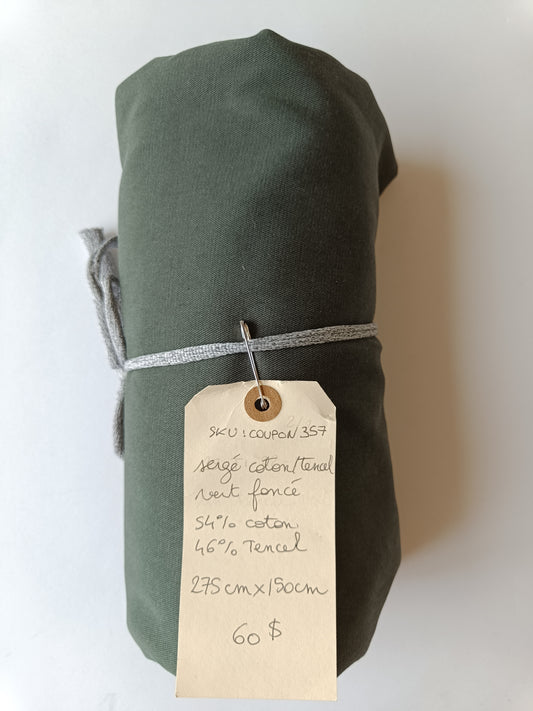 SKU : COUPON 357
sergé coton/tencel
vert foncé
54% coton
46% Tencel
275 cm x 150 cm
60 $